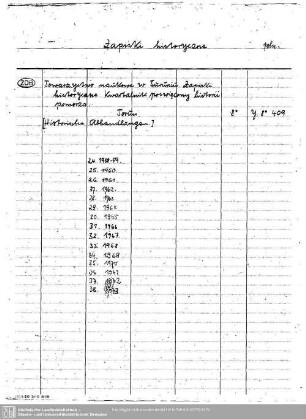 Zapiski historyczne
poln.
208 Towarzystwo naukowe w Toruniu. Zapiski
historyczne. Kwartalnik poświęcony historii
pomorza.
Toruń 8° Y. 8° 409
[Historische Abhandlungen]
24. 1958-59.
25. 1960
26. 1961
27. 1962.
28. 1963
29. 1964
30. 1965
31. 1966
32. 1967
33. 1968
34. 1969
35. 1970
36. 1971
37. 1972
38. 1973